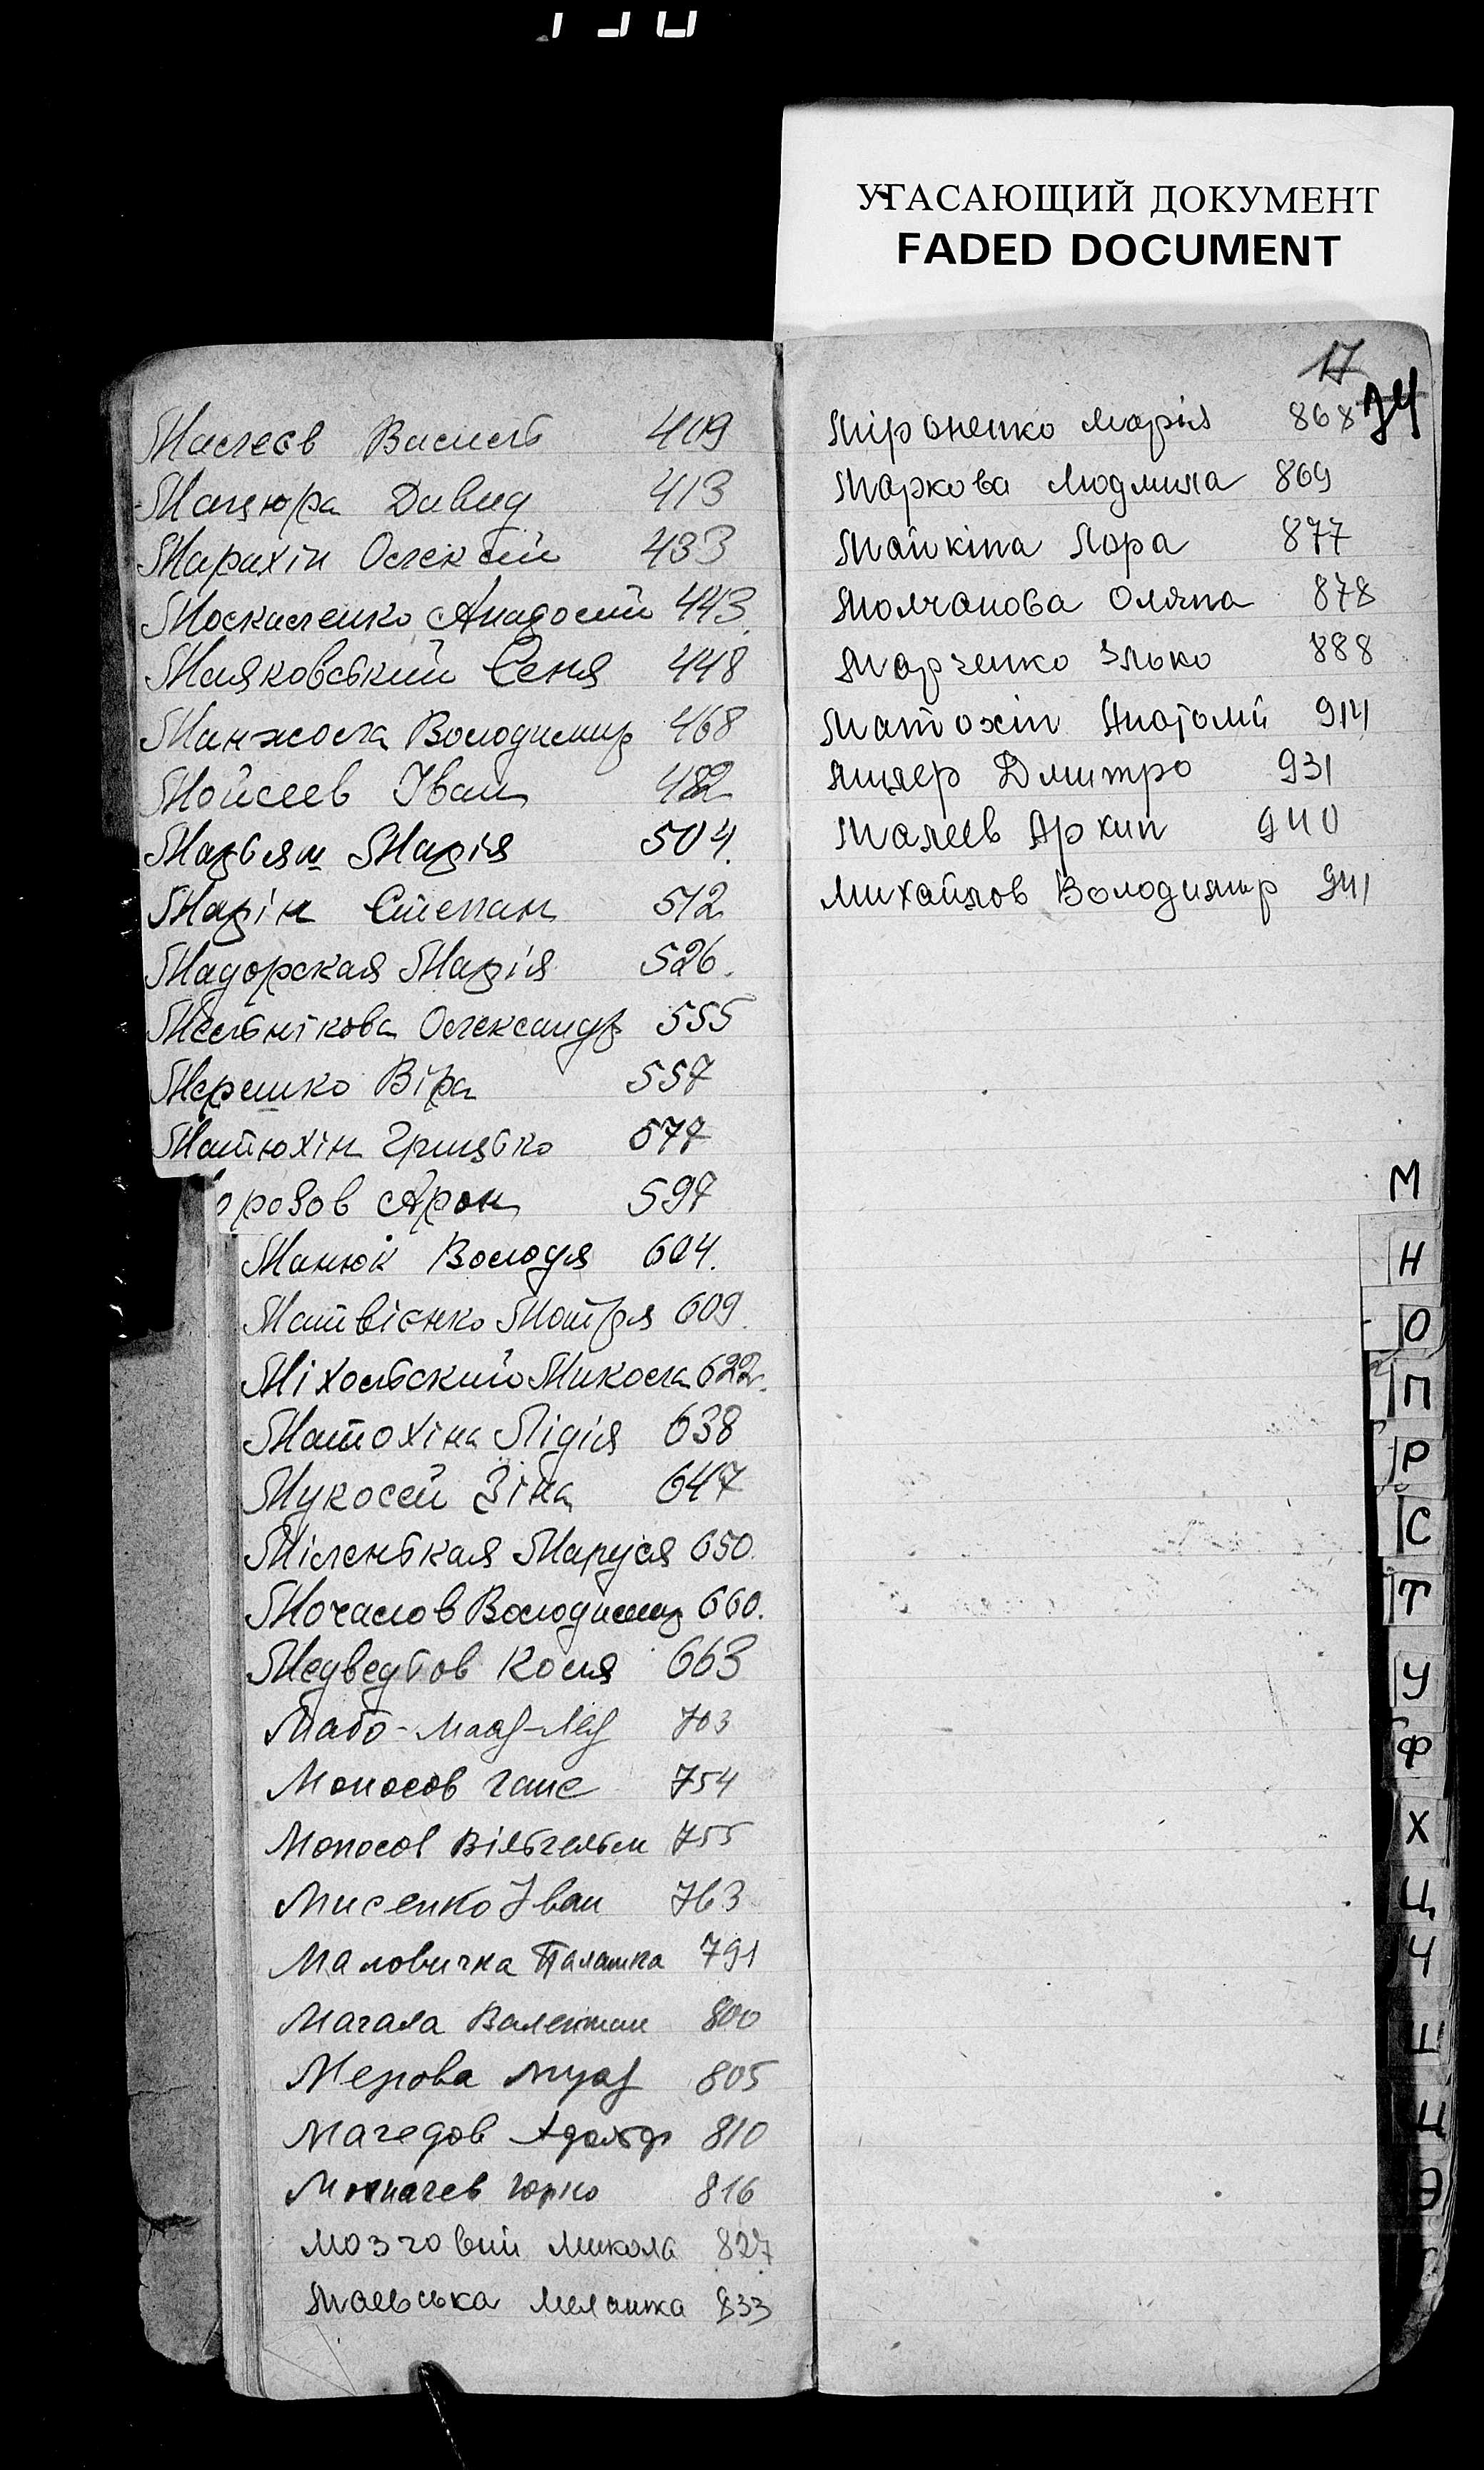 УГАСАЮЩИЙ ДОКУМЕНТ
FADED DOCUMENT
Маслєєв Василь 409
Мацюра Давид 413
Марахін Олексій 433
Москаленко Анадолій 443.
Маяковський Сеня 448
Манжола Володимир 468
Мойсеев Іван 482
Марьям Марія 504.
Марін Степан 512
Мадорская Марія 526.
Мельнікова Олександр 555
Мерешко Віра 557
Матюхін Грицько 577
орозов Арон 597
Манюк Володя 604.
Матвієнко Мотря 609.
Міхольский Микола 622.
Матохіна Лідія 638
Мукосей Зіна 647
Міленькая Маруся 650.
Мочалов Володимир 660.
Медведьов Коля 663
703
Моносов Ганс 754
Моносов Вільгельм 755
Мисенко Іван 763
Маловичка Палашка 791
Магала Валентин 800
805
Магедов Адольф 810
Мохначев Юрко 816
Мозговий Микола 827
Маевська Меланка 833
17
74
Міроненко Марія 868
Маркова Людмила 869
Майкіна Лора 877
Молчанова Оляна 878
Марченко Злько 888
Матохін Анатолій 914
Дмитро 931
Малеев Архип 940
Михайлов Володимир 941
М
Н
О
П
Р
С
Т
У
Ф
Х
Ц
Ч